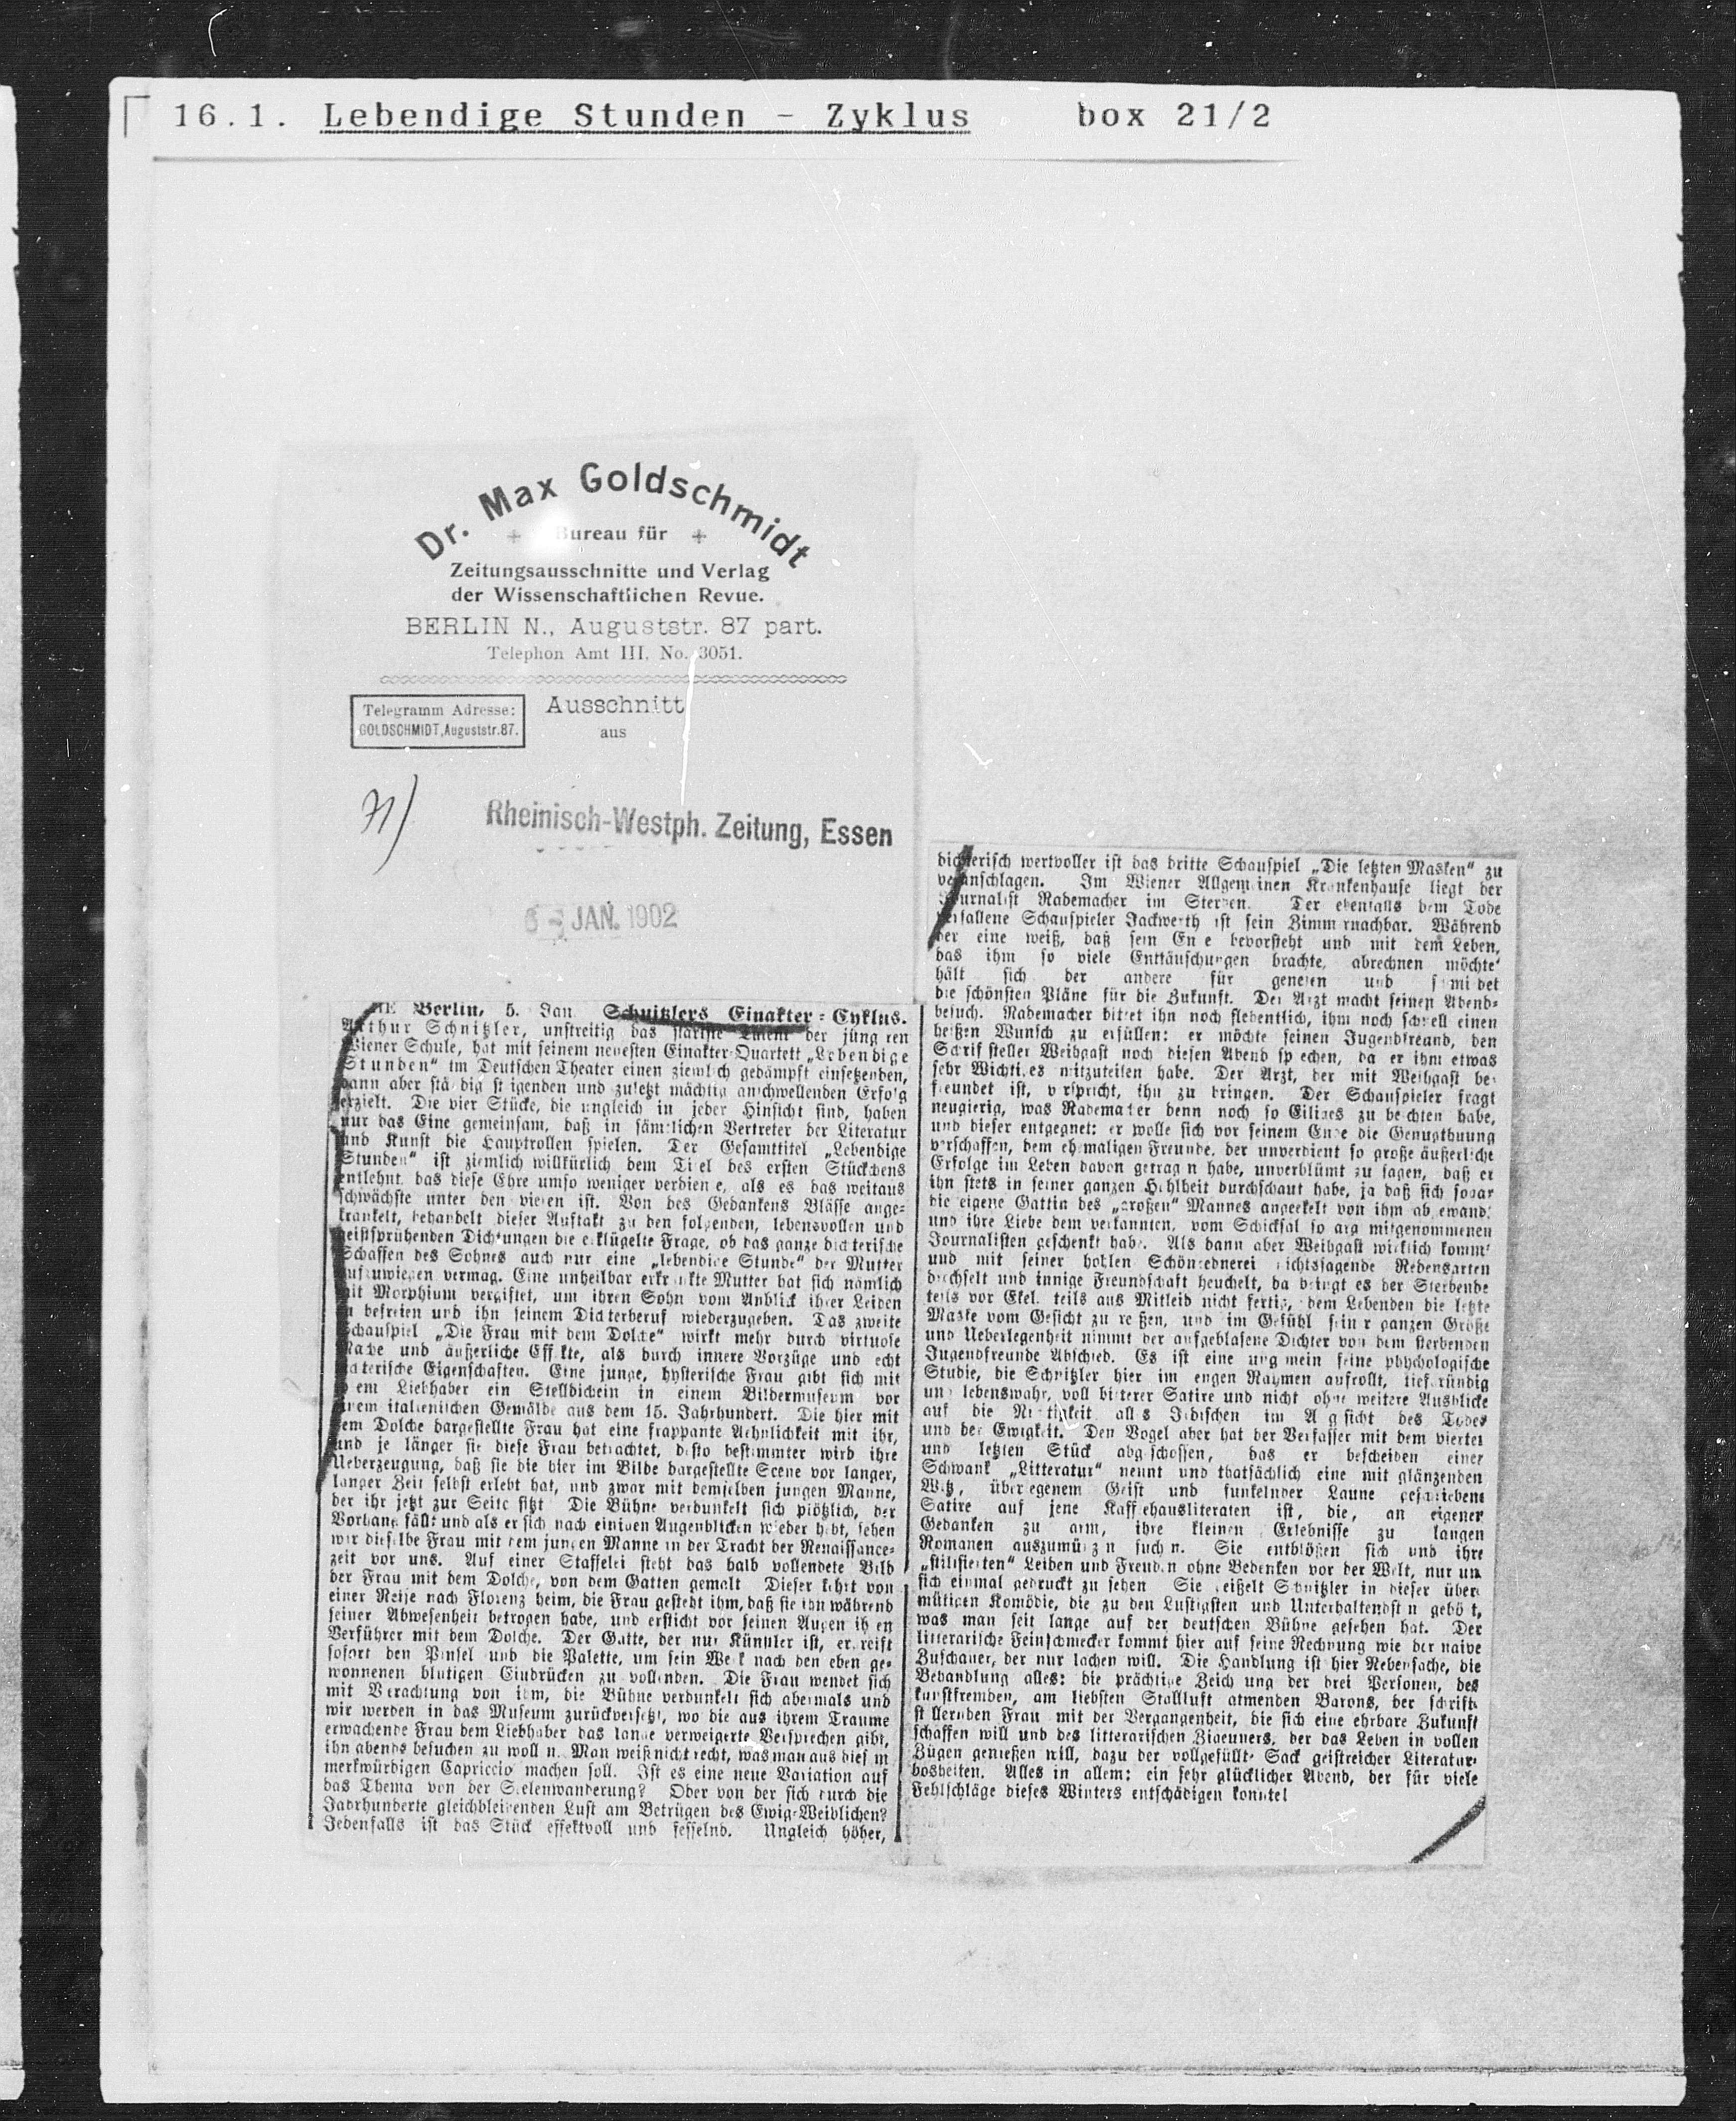 16.1. Lebendige Stunden - Zyklus box 21/2
Dr. Max Goldschmidt
Bureau für
Zeitungsausschnitte und Verlag
der Wissenschaftlichen Revue.
BERLIN N., Auguststr. 87 part.
Telephon Amt III, No. 3051.
Telegramm Adresse:
GOLDSCHMIDT, Auguststr. 87.
Ausschnitt
aus
Rheinisch-Westph. Zeitung, Essen
6 - JAN. 1902
Berlin, 5. Jan. Schnitzlers Einakter-Cyklus.
Arthur Schnitzler, unstreitig das stärkste Talent der jüngeren
Wiener Schule, hat mit seinem neuesten Einakter-Quartett „Lebendige
Stunden“ im Deutschen Theater einen ziemlich gedämpft einsetzenden,
dann aber ständig steigenden und zuletzt mächtig anschwellenden Erfolg
erzielt. Die vier Stücke, die ungleich in jeder Hinsicht sind, haben
nur das Eine gemeinsam, daß in sämtlichen Vertreter der Literatur
und Kunst die Hauptrollen spielen. Der Gesamttitel „Lebendige
Stunden“ ist ziemlich willkürlich dem Titel des ersten Stückchens
entlehnt, das diese Ehre umso weniger verdiene, als es das weitaus
schwächste unter den vieren ist. Von des Gedankens Blässe ange-
kränkelt, behandelt dieser Auftakt zu den folgenden, lebensvollen und
geistsprühenden Dichtungen die erklügelte Frage, ob das ganze dichterische
Schaffen des Sohnes auch nur eine „lebendige Stunde“ der Mutter
aufzuwiegen vermag. Eine unheilbar erkrankte Mutter hat sich nämlich
mit Morphium vergiftet, um ihren Sohn vom Anblick ihrer Leiden
zu befreien und ihn seinem Dichterberuf wiederzugeben. Das zweite
Schauspiel „Die Frau mit dem Dolche“ wirkt mehr durch virtuose
Mache und äußerliche Effekte, als durch innere Vorzüge und echt
dichterische Eigenschaften. Eine junge, hysterische Frau gibt sich mit
dem Liebhaber ein Stelldichein in einem Bildermuseum vor
einem italienischen Gemälde aus dem 15. Jahrhundert. Die hier mit
dem Dolche dargestellte Frau hat eine frappante Aehnlichkeit mit ihr,
und je länger sie diese Frau betrachtet, desto bestimmter wird ihre
Ueberzeugung, daß sie die hier im Bilde dargestellte Scene vor langer,
langer Zeit selbst erlebt hat, und zwar mit demselben jungen Manne,
der ihr jetzt zur Seite sitzt. Die Bühne verdunkelt sich plötzlich, der
Vorhang fällt und als er sich nach einigen Augenblicken wieder hebt, sehen
wir dieselbe Frau mit dem jungen Manne in der Tracht der Renaissance-
zeit vor uns. Auf einer Staffelei steht das halb vollendete Bild
der Frau mit dem Dolche, von dem Gatten gemalt. Dieser kehrt von
einer Reise nach Florenz heim, die Frau gesteht ihm, daß sie ihn während
seiner Abwesenheit betrogen habe, und ersticht vor seinen Augen ihren
Verführer mit dem Dolche. Der Gatte, der nur Künstler ist, ergreift
sofort den Pinsel und die Palette, um sein Werk nach den eben ge-
wonnenen blutigen Eindrücken zu vollenden. Die Frau wendet sich
mit Verachtung von ihm, die Bühne verdunkelt sich abermals und
wir werden in das Museum zurückversetzt, wo die aus ihrem Traume
erwachende Frau dem Liebhaber das lange verweigerte Versprechen gibt,
ihn abends besuchen zu wollen. Man weiß nicht recht, was man aus diesem
merkwürdigen Capriccio machen soll. Ist es eine neue Variation auf
das Thema von der Seelenwanderung? Oder von der sich durch die
Jahrhunderte gleichbleibenden Lust am Betrügen des Ewig-Weiblichen?
Jedenfalls ist das Stück effektvoll und fesselnd. Ungleich höher,
dichterisch wertvoller ist das dritte Schauspiel „Die letzten Masken“ zu
veranschlagen. Im Wiener Allgemeinen Krankenhause liegt der
Journalist Rademacher im Sterben. Der ebenfalls dem Tode
verfallene Schauspieler Jackwerth ist sein Zimmernachbar. Während
der eine weiß, daß sein Ende bevorsteht und mit dem Leben,
das ihm so viele Enttäuschungen brachte, abrechnen möchte,
hält sich der andere für genesen und schmiedet
die schönsten Pläne für die Zukunft. Der Arzt macht seinen Abend-
besuch. Rademacher bittet ihn noch flehentlich, ihm noch schnell einen
heißen Wunsch zu erfüllen: er möchte seinen Jugendfreund, den
Schriftsteller Weihgast noch diesen Abend sprechen, da er ihm etwas
sehr Wichtiges mitzuteilen habe. Der Arzt, der mit Weihgast be-
freundet ist, verspricht, ihn zu bringen. Der Schauspieler fragt
neugierig, was Rademacher denn noch so Eiliges zu beichten habe,
und dieser entgegnet: er wolle sich vor seinem Ende die Genugthuung
verschaffen, dem ehemaligen Freunde, der unverdient so große äußerliche
Erfolge im Leben davon getragen habe, unverblümt zu sagen, daß er
ihn stets in seiner ganzen Hohlheit durchschaut habe, ja daß sich sogar
die eigene Gattin des „großen“ Mannes angeekelt von ihm abgewandt
und ihre Liebe dem verkannten, vom Schicksal so arg mitgenommenen
Journalisten geschenkt habe. Als dann aber Weihgast wirklich kommt
und mit seiner hohlen Schönrednerei nichtssagende Redensarten
drechselt und innige Freundschaft heuchelt, da bringt es der Sterbende
teils vor Ekel, teils aus Mitleid nicht fertig, dem Lebenden die letzte
Maske vom Gesicht zu reißen, und im Gefühl seiner ganzen Größe
und Ueberlegenheit nimmt der aufgeblasene Dichter von dem sterbenden
Jugendfreunde Abschied. Es ist eine ungemein feine psychologische
Studie, die Schnitzler hier im engen Rahmen aufrollt, tiefgründig
und lebenswahr, voll bitterer Satire und nicht ohne weitere Ausblicke
auf die Nichtigkeit alles Irdischen im Angesicht des Todes
und der Ewigkeit. Den Vogel aber hat der Verfasser mit dem vierten
und letzten Stück abgeschossen, das er bescheiden einen
Schwank „Litteratur“ nennt und thatsächlich eine mit glänzendem
Witz, überlegenem Geist und funkelnder Laune geschriebene
Satire auf jene Kaffeehausliteraten ist, die, an eigenen
Gedanken zu arm, ihre kleinen Erlebnisse zu langen
Romanen auszumünzen suchen. Sie entblößen sich und ihre
„stilisierten“ Leiden und Freuden ohne Bedenken vor der Welt, nur um
sich einmal gedruckt zu sehen. Sie geißelt Schnitzler in dieser über-
mütigen Komödie, die zu den Lustigsten und Unterhaltendsten gehört,
was man seit lange auf der deutschen Bühne gesehen hat. Der
litterarische Feinschmecker kommt hier auf seine Rechnung wie der naive
Zuschauer, der nur lachen will. Die Handlung ist hier Nebensache, die
Behandlung alles: die prächtige Zeichnung der drei Personen, des
kunstfremden, am liebsten Stallluft atmenden Barons, der schrift-
stellernden Frau mit der Vergangenheit, die sich eine ehrbare Zukunft
schaffen will und des litterarischen Zigeuners, der das Leben in vollen
Zügen genießen will, dazu der vollgefüllte Sack geistreicher Literatur-
bosheiten. Alles in allem: ein sehr glücklicher Abend, der für viele
Fehlschläge dieses Winters entschädigen konnte!